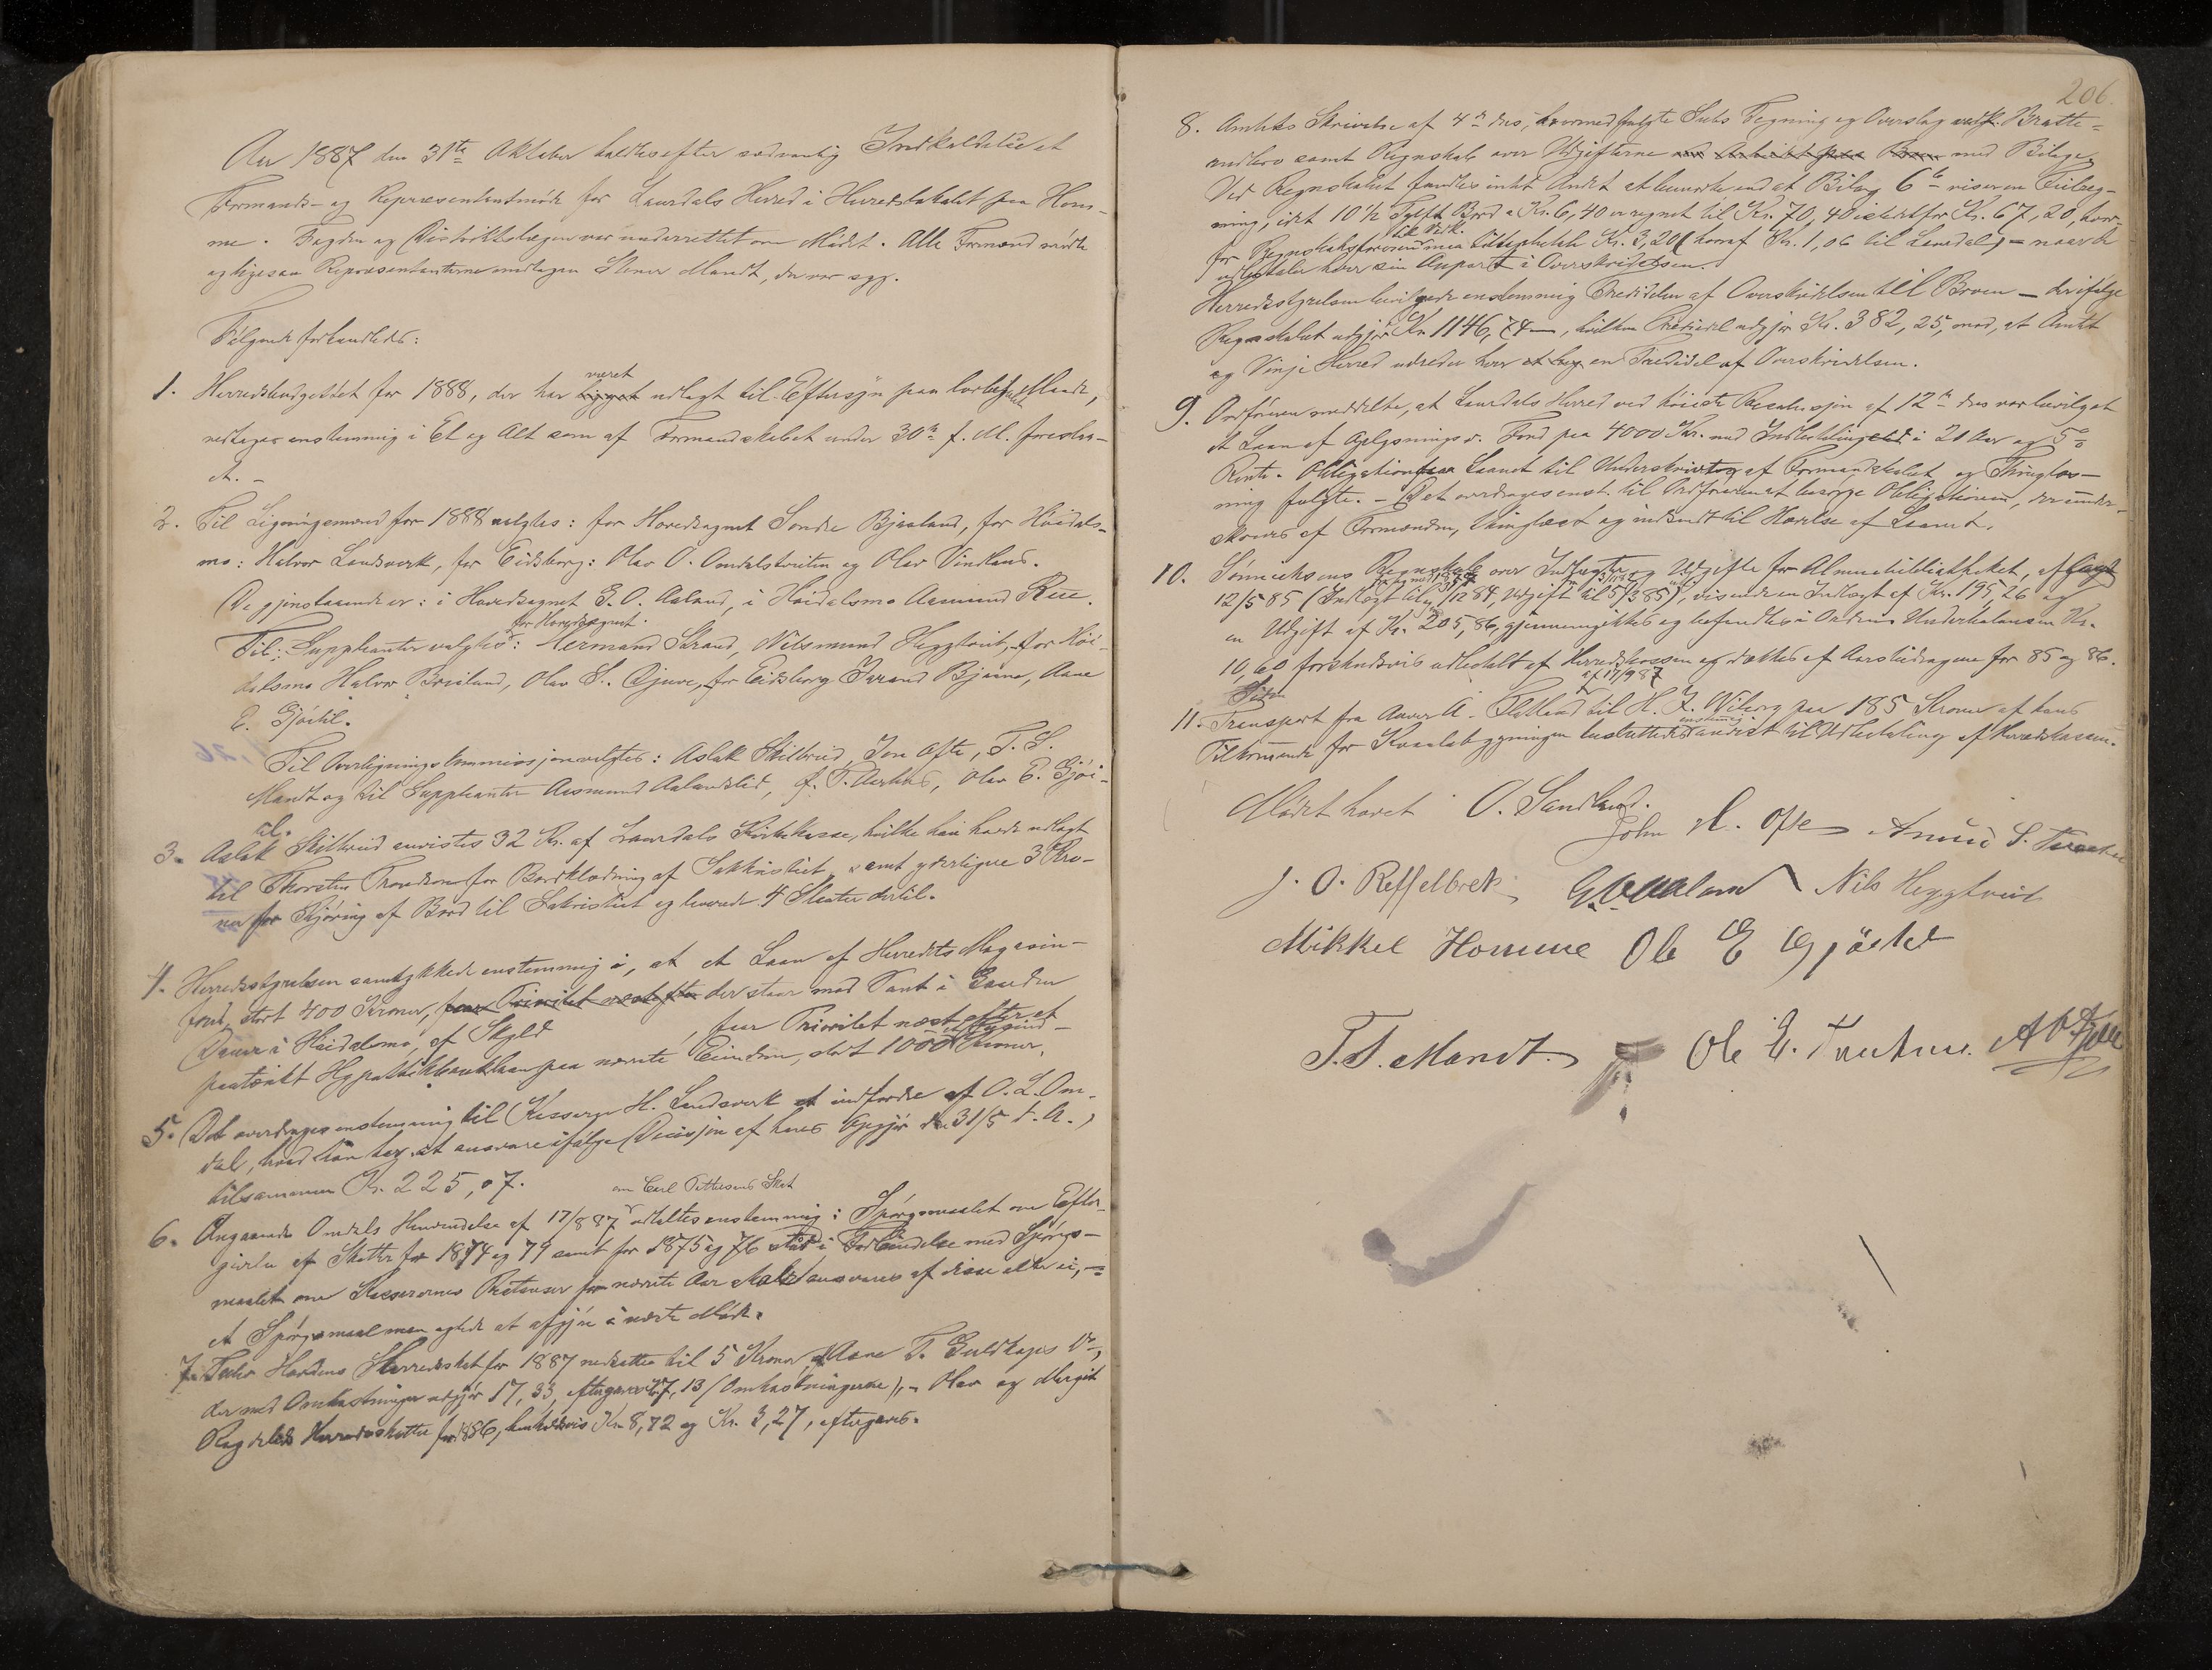 Aar 1887 den 31te Oktober holdtes efter sædvanlig Indkaldelse et
Formands- og Repræsentantmøde for Laurdals Herred i Herredslokalet paa Hom-
me. Fogden og Distriktslægen var underrettet om Mødet. Alle Formænd mødte
og ligesaa Repræsentanterne undtagen Steinar Mandt, der var syg.
Følgende forhandledes:
1. Herredsbudgettet for 1888, der har været udlagt til Eftersyn paa lovbefalet Maade,
vedtages enstemmig i Et og Alt som af Formandskabet under 30te f. M. foreslaa-
et. -
2. Til Ligningsmænd for 1888 valgtes: for Hovedsognet Sondre Bjaaland, for Høidals-
mo: Halvor Landsverk, for Eidsborg: Olav O. Omdalstveiten og Olav Vindlaus.
De gjenstaaende er: i Hovedsognet G. O. Aaland, i Høidalsmo Aasmund Rue.
Til Suppleanter valgtes for Hovedsognet: Hermand Strand, Nils Heggtveit, for Høi-
dalsmo Halvor Briskeland, Olav S. Djuve, for Eidsborg Tarand Bjaaen, Aane
E. Gjøitil.
Til Overligningskommissjon valgtes: Aslak Skilbreid, Jon Ofte, T. S.
Mandt og til Suppleanter Aasmund Aalandslid, J. T. Aarhus, Olav E. Gjøi-
til.
3. Aslak Skilbreid anvistes 32 Kr. af Laurdals Kirkekasse, hvilke han havde udlagt
til Thorstein Trondson for Bordklædning af Sakristiet, samt yderligere 3 Kro-
ner for Kjøring af Bord til Sakristiet og leverede 4 Skaater dertil.
4. Herredsstyrelsen samtykkede enstemmig i, at et Laan af Herredets Magasin-
fond, stort 400 Kroner, faar Prioritet næst efter der staar mod Pant i Gaarden
Djuve i Høidalsmo, af Skyld , faar Prioritet næst efter et
paatænkt Hypothekbanklaan paa nævnte Eiendom, stort 1000 et Tusind - Kroner.
5. Det overdrages enstemmig til Kasserer H. Landsverk at indfordre af O. L. Om-
dal, hvad han har at ansvare ifølge Decisjon af hans Opgjør den 31/5 d. A.,
tilsammen Kr. 225,07.
6. Angaaende Omdals Henvendelse af 17/8 87 om Carl Pettersens Skat udtaltes enstemmig: Spørgsmaalet om Efter-
givelse af Skatter for 1874 og 79 samt for 1875 og 76 staar i Forbindelse med Spørgs-
maalet om Kasserernes Restanser for nævnte Aar skal ansvares af disse eller ei, -
et Spørgsmaal man agtede at afgjøre i næste Møde.
7. Tarkjel Haadens Herredsskat for 1887 nedsattes til 5 Kroner, Aane T. Guldkaps Do,
der med Omkostninger udgjør 17,33, eftergaves 7,13 (Omkostningerne), - Olav og Margit
Rogdelis Herredsskatter for 1886, henholdsvis Kr. 8,72 og Kr. 3,27, eftergaves.
206.
8. Amtets Skrivelse af 4de ds, hvormed fulgte Tegning og Overslag vedk. Bratte-
andbro samt Regnskab over Udgifterne med Bilage.
Ved Regnskabet fandtes intet Andet at bemærke end at Bilag 6 viser en Feilreg-
ning, idet 10½ Tylft Bord a Kr. 6,40 er regnet til Kr. 70,40 istedetfor Kr. 67,20, hvor-
for Regnskabsføreren til Vedk. maa tilbagebetale Kr. 3,20 (hvoraf Kr. 1,06 til Laurdal) - naar de
udbetaler hver sin Anpart i Overskridelsen.
Herredsstyrelsen bevilgede enstemmig Tredidelen af Overskridelsen til Broen - der ifølge
Regnskabet udgjør Kr. 1146,74 -, hvilken Trediedel udgjør Kr. 382,25, mod, at Amtet
og Vinje Herred udreder hver en Trediedel af Overskridelsen.
9. Ordføreren meddelte, at Laurdals Herred ved høieste Resolusjon af 12te ds var bevilget
et Laan af Oplysningsv. Fond paa 4000 Kr. med Indbetalingstid i 20 Aar og 5%
Rente. Obligation for Laanet til Underskrivning af Formandskabet og Thinglæs-
ning fulgte. - Det overdrages enst. til Ordføreren at besørge Obligationen, der under-
skreves af Formænden, thinglæst og indsendt til Hævelse af Laanet.
10. Sønnichsens Regnskab over Indtægter og Udgifter for Almuebibliotheket, aflagt
12/5 85 (Indtægt til 31/12 84, Udgift til 5/3 85), visende en Indtægt af Kr. 195,26 og
en Udgift af Kr. 205,86, gjennemgikkes og befandtes i Orden. Underbalansen Kr.
10,60 forskudsvis udbetalt af Herredskassen og dækkes af Aarsbidragene for 85 og 86.
11. Transport fra Aanver A. Flatland til H. J. Wiborg af 17/9 87 paa 185 Kroner af hans
Tilkommende for Kvaalebygningen besluttedes enstemmig anvist til Udbetaling af Herredskassen.
Mødet hævet O. Sandland.
John A. Ofte
J. O. Reffelbrek G. O. Aaland Nils Heggtveit
Mikkel Homme Ole E Gjøitil
T. S. Mandt. Ole E.